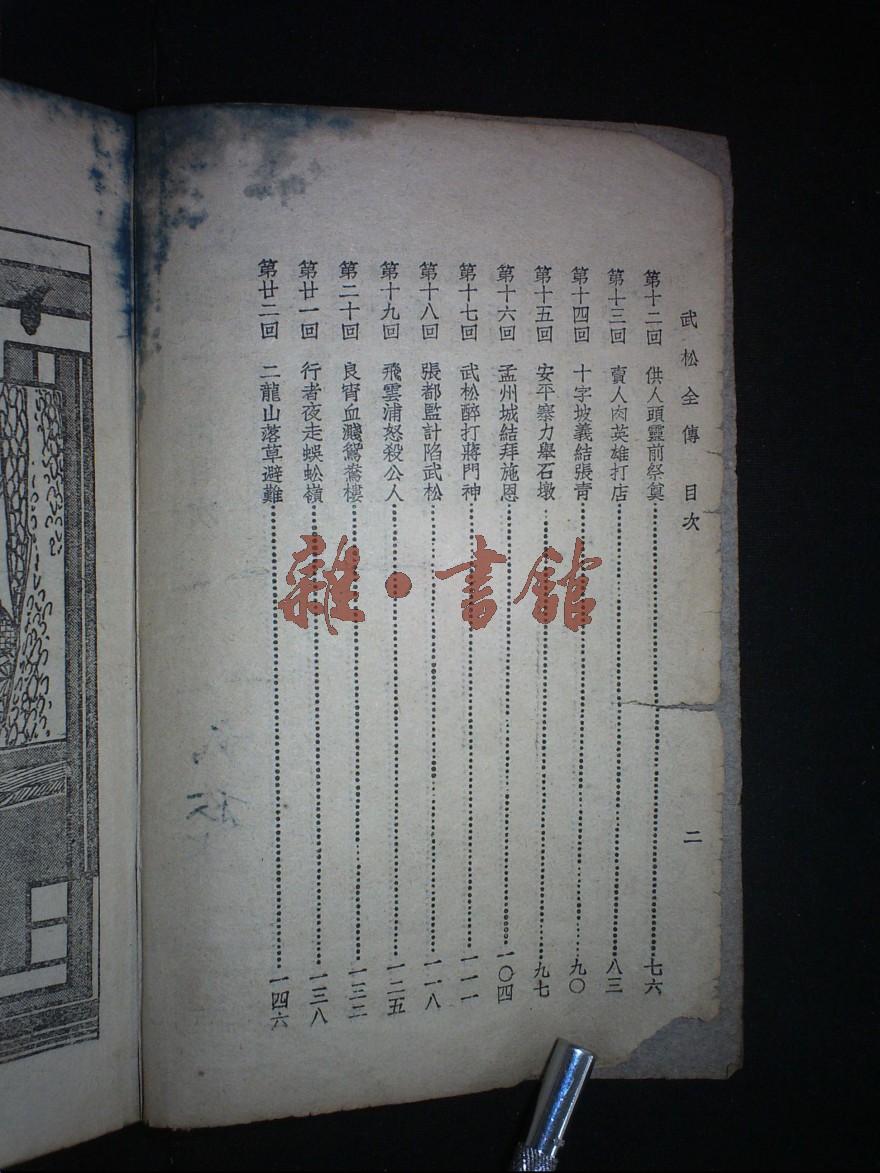 武松全傳 目次 二
第十二回 供人頭靈前祭奠 七六
第十三回 賣人肉英雄打店 八三
第十四回 十字坡義結張青 九〇
第十五回 安平寨力舉石墩 九七
第十六回 孟州城結拜施恩 一〇四
第十七回 武松醉打蔣門神 一一一
第十八回 張都監計陷武松 一一八
第十九回 飛雲浦怒殺公人 一二五
第二十回 良宵血濺鴛鴦樓 一三二
第廿一回 行者夜走蜈蚣嶺 一三八
第廿二回 二龍山落草避難 一四六
雜·書館